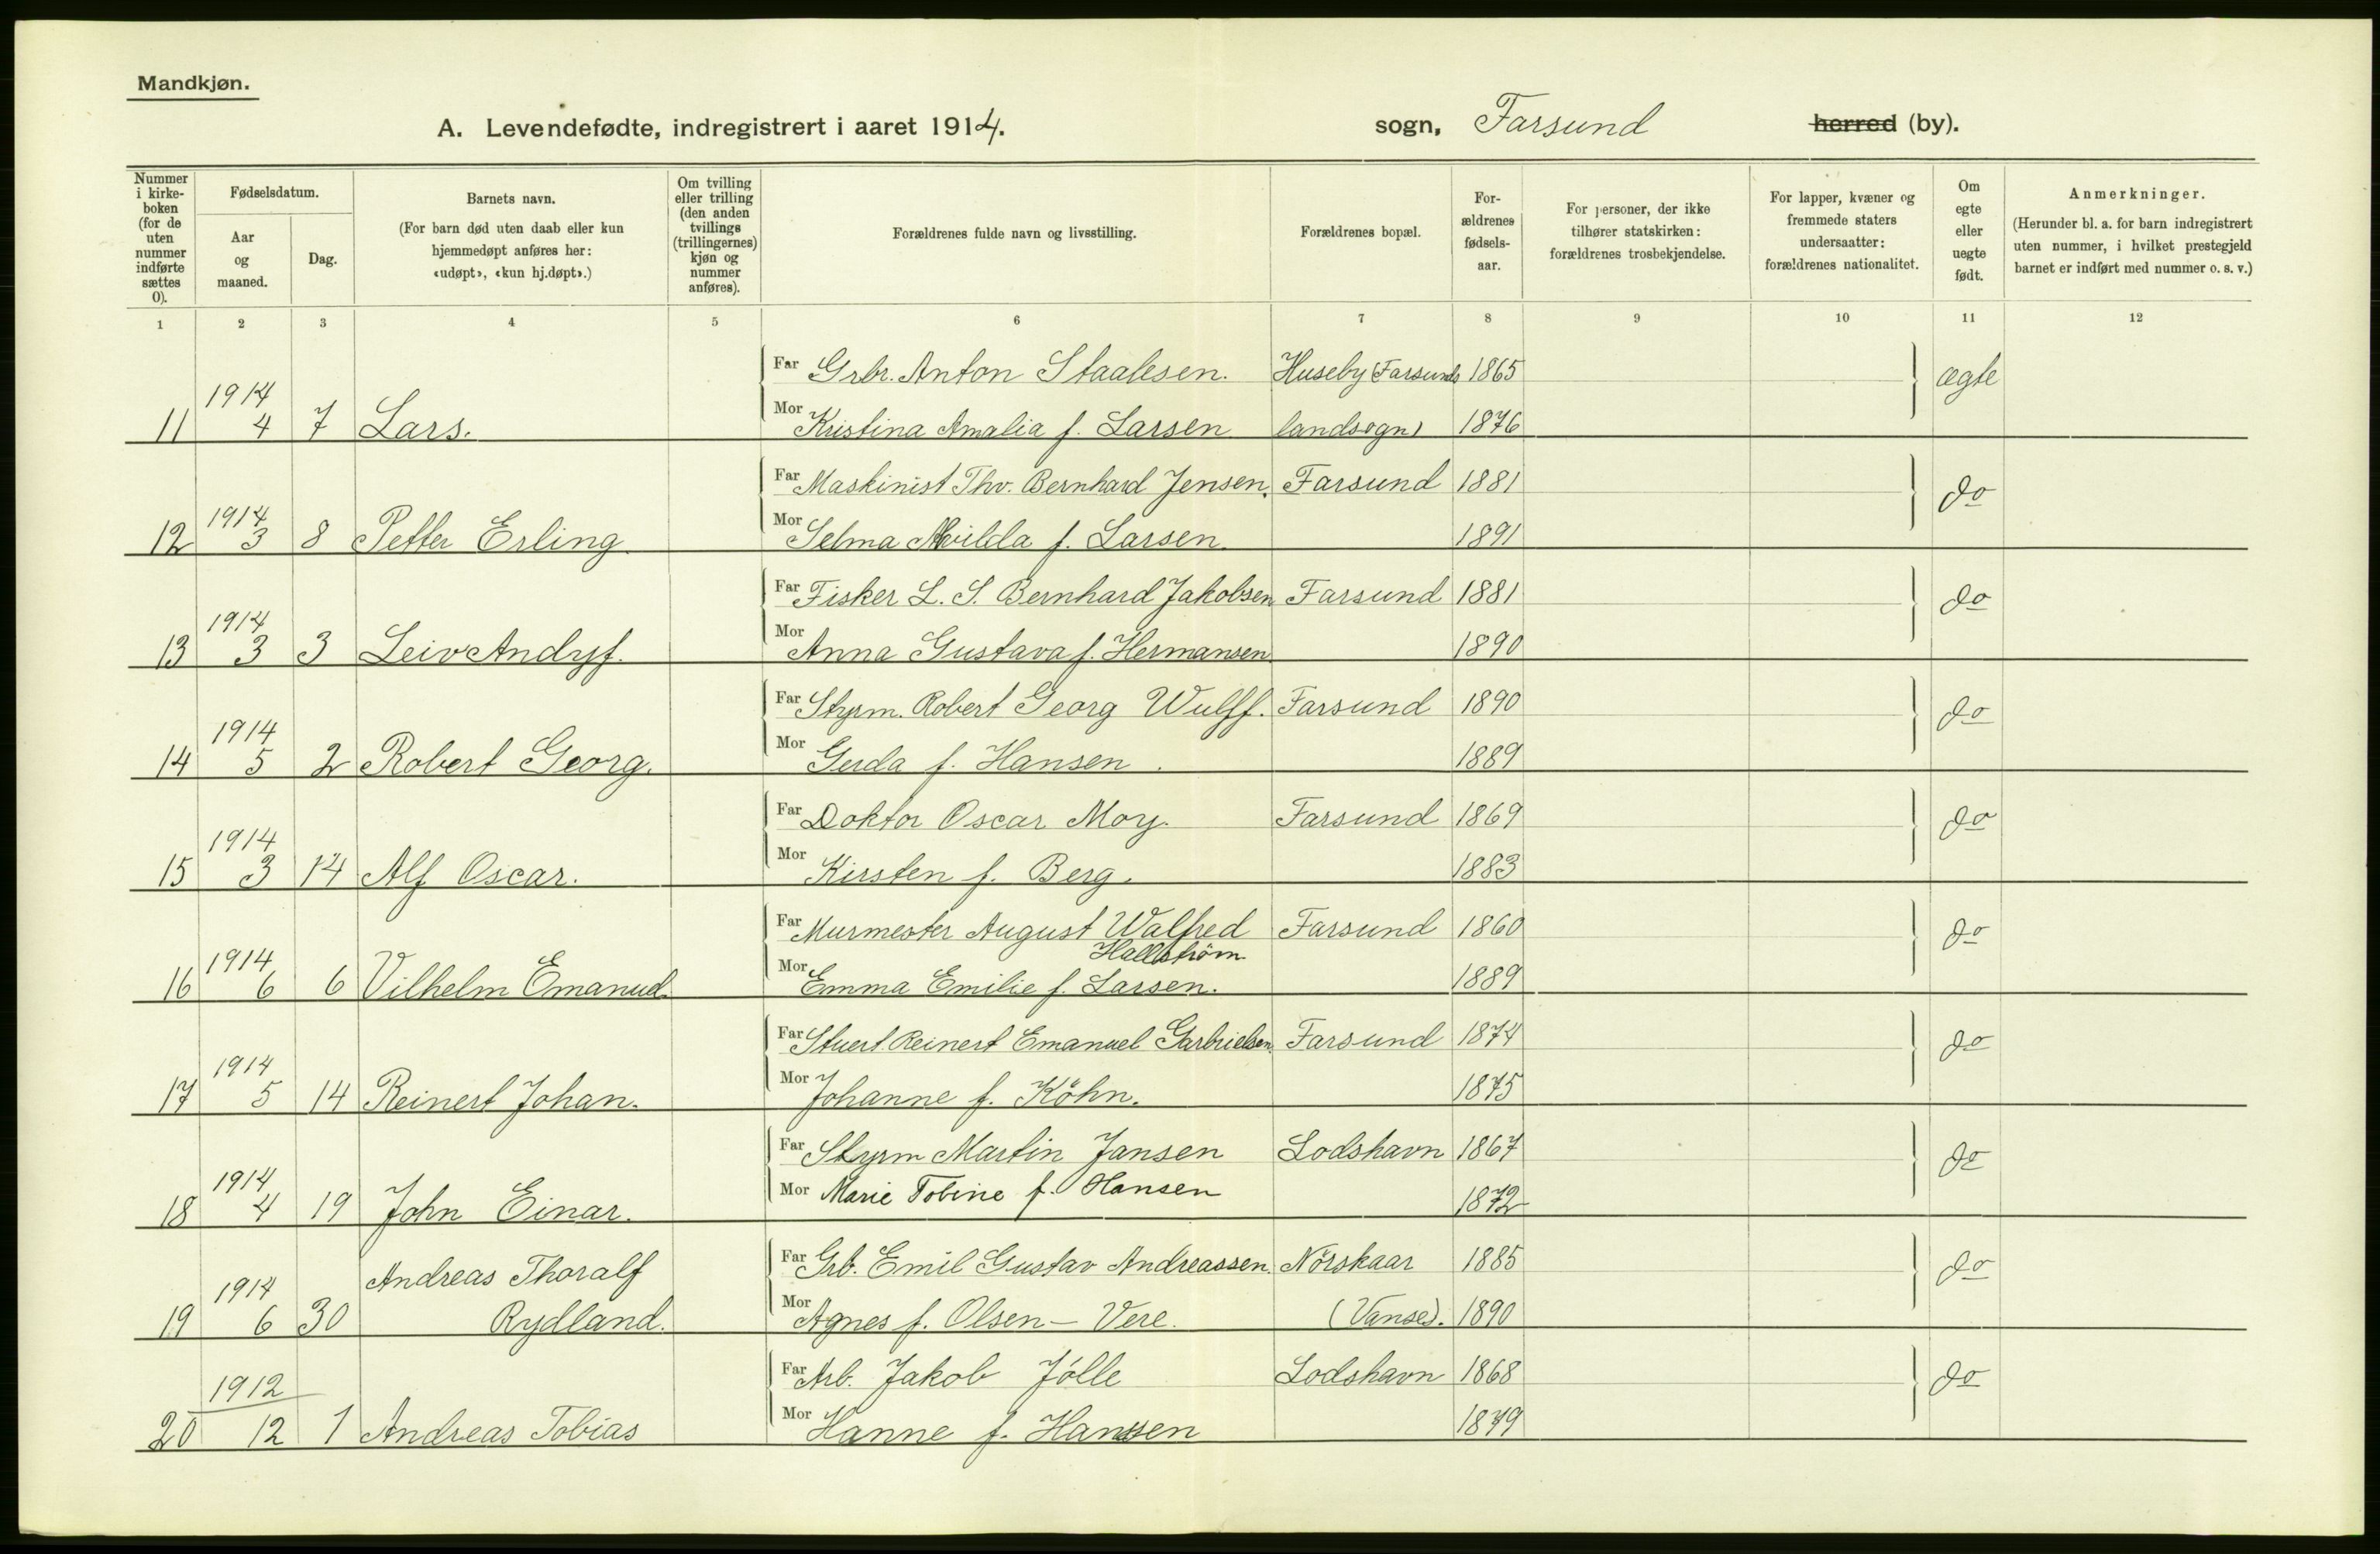 Mandkjøn.
A. Levendefødte, indregistrert i aaret 1914. sogn, Farsund herred (by).
Nummer i kirke-boken (for de uten nummer indførte sættes 0).
Fødselsdatum.
Aar og maaned.
Dag.
Barnets navn.
(For barn død uten daab eller kun hjemmedøpt anføres her: «udøpt», «kun hj.døpt».)
Om tvilling eller trilling (den anden tvillings (trillingernes) kjøn og nummer anføres).
Forældrenes fulde navn og livsstilling.
Forældrenes bopæl.
For-ældrenes fødsels-aar.
For personer, der ikke tilhører statskirken: forældrenes trosbekjendelse.
For lapper, kvæner og fremmede staters undersaatter: forældrenes nationalitet.
Om egte eller uegte født.
Anmerkninger.
(Herunder bl. a. for barn indregistrert uten nummer, i hvilket prestegjeld barnet er indført med nummer o. s. v.)
1 2 3 4 5 6 7 8 9 10 11 12
Far Grbr. Anton Staalesen. Huseby (Farsunds 1865 ægte
1914
11 4 7 Lars. Mor Kristina Amalia f. Larsen landsogn) 1876
Far Maskinist Thv. Bernhard Jensen. Farsund 1881 do
1914
12 3 8 Petter Erling. Mor Selma f. Larsen. 1891
Far Fisker L. S. Bernhard Jakobsen Farsund 1881 do
1914
13 3 3 Leiv Andyf. Mor Anna Gustava f. Hermansen 1890
Far Styrm. Robert Georg Wulff. Farsund 1890 do
1914
14 5 2 Robert Georg. Mor Gerda f. Hansen. 1889
Far Doktor Oscar Moy. Farsund 1869 do
1914
15 3 14 Alf Oscar. Mor Kirsten f. Berg. 1883
Far Murmester August Walfred Farsund 1860 do
Hallström
1914
16 6 6 Vilhelm Emanuel. Mor Emma Emilie f. Larsen. 1889
Far Stuert. Reinert Emanuel Garbrielsen. Farsund 1874 do
1914
17 5 14 Reinert Johan. Mor Johanne f. Köhn. 1875
Far Styrm Martin Jansen Lodshavn 1867 do
1914
18 4 19 John Einar. Mor Marie Tobine f. Hansen 1872
Andreas Thoralf Far Grb. Emil Gustav Andreassen. Nörskaar 1885 do
1914
19 6 30 Rydland. Mor Agnes f. Olsen - Vere. (Vanse). 1890
Far Arb. Jakob Jölle Lodshavn 1868 do
1912
20 12 1 Andreas Tobias Mor Hanne f. Hanssen 1879